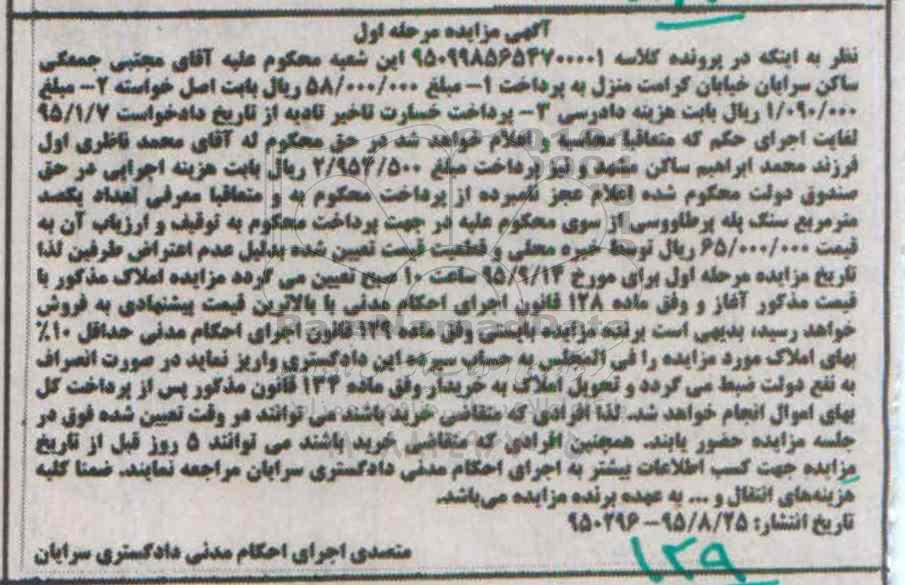 آگهی مزایده مرحله اول
نظر به اینکه در پرونده کلاسه ۹۵۰۹۹۸۵۶۵۴۷۰۰۰۰۱ این شعبه محکوم علیه آقای مجتبی جمعگی
ساکن سرایان خیابان کرامت منزل به پرداخت ۱- مبلغ ۵۸/۰۰۰/۰۰۰ ریال بابت اصل خواسته ۲- مبلغ
۱/۰۹۰/۰۰۰ ریال بابت هزینه دادرسی ۳- پرداخت خسارت تاخیر تادیه از تاریخ دادخواست ۹۵/۱/۷
لغایت اجرای حکم که متعاقبا محاسبه و اعلام خواهد شد در حق محکوم له آقای محمد ناظری اول
فرزند محمد ابراهیم ساکن مشهد و نیز پرداخت مبلغ ۲/۹۵۴/۵۰۰ ریال بابت هزینه اجرایی در حق
صندوق دولت محکوم شده اعلام عجز نامبرده از پرداخت محکوم به و متعاقبا معرفی تعداد یکصد
مترمربع سنگ پله پرطاووسی از سوی محکوم علیه در جهت پرداخت محکوم به توقیف و ارزیاب آن به
قیمت ۶۵/۰۰۰/۰۰۰ ریال توسط خبره محلی و قطعیت قیمت تعیین شده بدلیل عدم اعتراض طرفین لذا
تاریخ مزایده مرحله اول برای مورخ ۹۵/۹/۱۴ ساعت ۱۰ صبح تعیین می گردد مزایده املاک مذکور با
قیمت مذکور آغاز و وفق ماده ۱۲۸ قانون اجرای احکام مدنی با بالاترین قیمت پیشنهادی به فروش
خواهد رسید، بدیهی است برنده مزایده بایستی وفق ماده ۱۲۹ قانون اجرای احکام مدنی حداقل ۱۰٪
بهای املاک مورد مزایده را فی المجلس به حساب سپرده این دادگستری واریز نماید در صورت انصراف
به نفع دولت ضبط می گردد و تحویل املاک به خریدار وفق ماده ۱۳۴ قانون مذکور پس از پرداخت کل
بهای اموال انجام خواهد شد. لذا افرادی که متقاضی خرید باشند می توانند در وقت تعیین شده فوق در
جلسه مزایده حضور یابند. همچنین افرادی که متقاضی خرید باشند می توانند ۵ روز قبل از تاریخ
مزایده جهت کسب اطلاعات بیشتر به اجرای احکام مدنی دادگستری سرایان مراجعه نمایند. ضمنا کلیه
هزینه‌های انتقال و ... به عهده برنده مزایده می‌باشد.
تاریخ انتشار: ۹۵/۸/۲۵- ۹۵۰۲۹۶
متصدی اجرای احکام مدنی دادگستری سرایان
۱۲۹